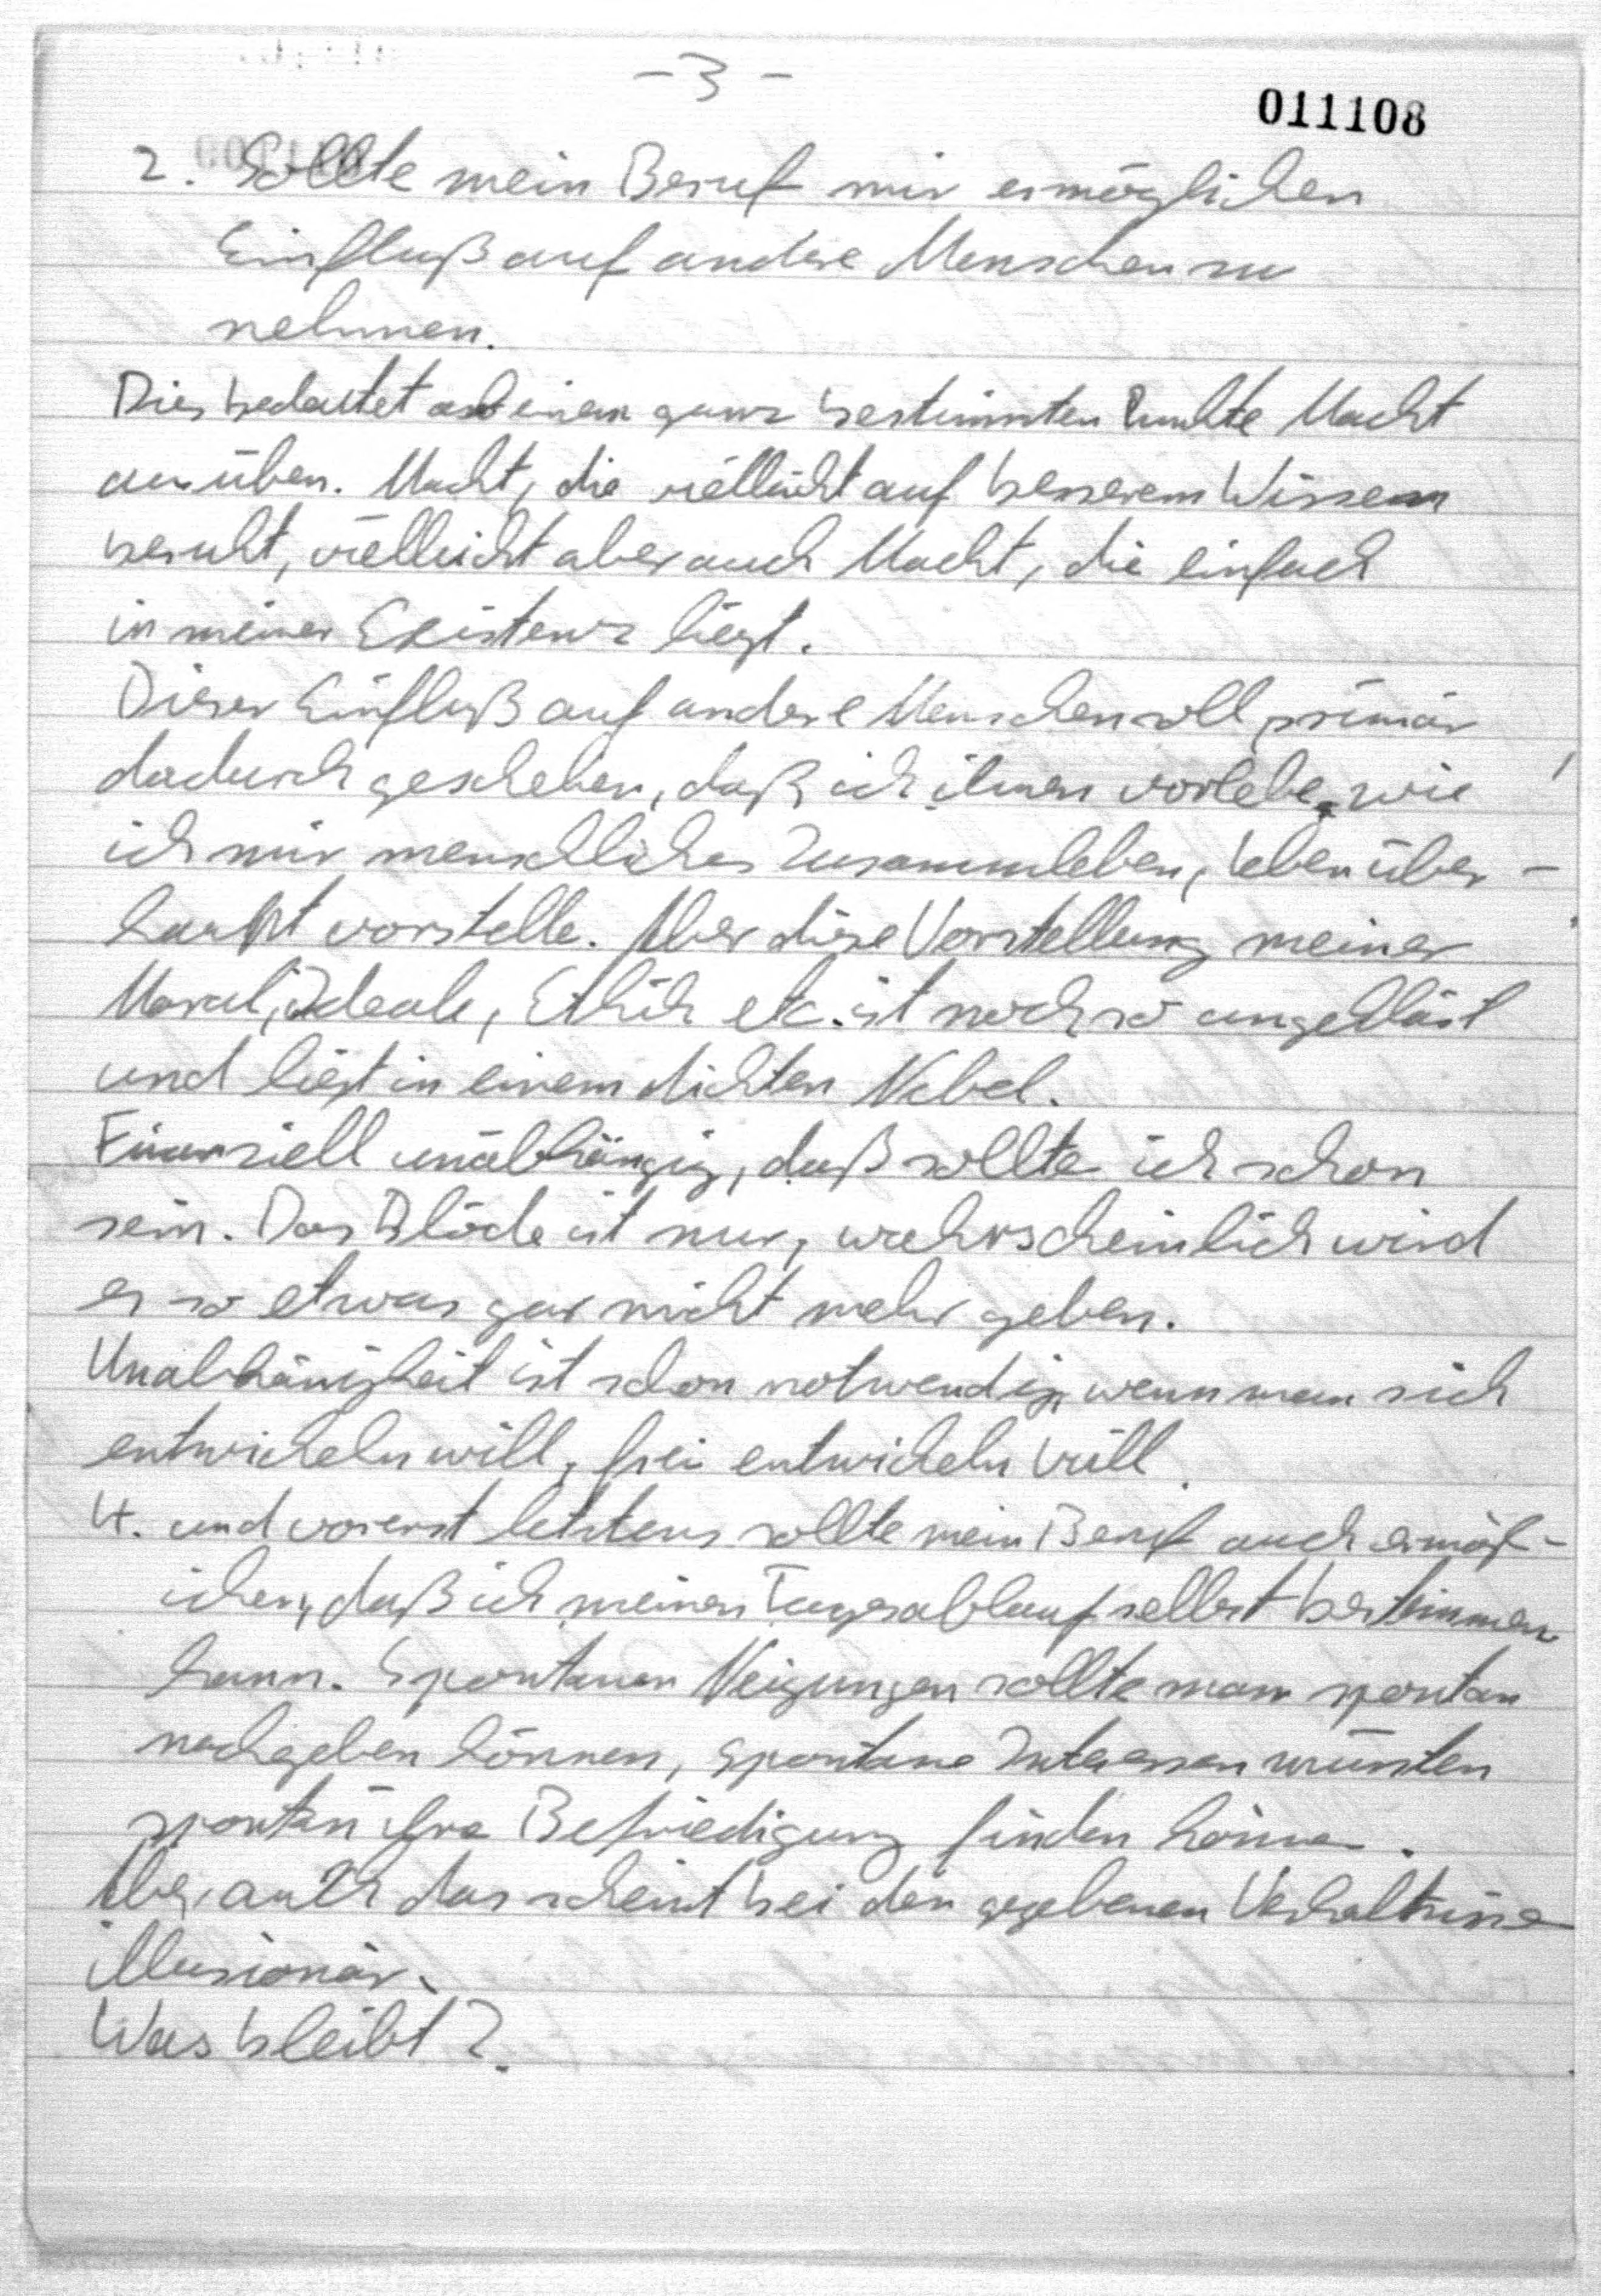 - 3 -
011108
2. Sollte mein Beruf mir ermöglichen
Einfluß auf andere Menschen zu
nehmen.
Dies bedeutet an einem ganz bestimmten Punkte Macht
ausüben. Macht, die vielleicht auf besserem Wissen
beruht, vielleicht aber auch Macht, die einfach
in meiner Existenz liegt.
Dieser Einfluß auf andere Menschen soll primär
dadurch geschehen, daß ich ihnen vorlebe, wie
ich mir menschliches Zusammleben, Leben über-
haupt vorstelle. Aber diese Vorstellung meiner
Moral, Ideale, Ethik etc. ist noch so ungeklärt
und liegt in einem dichten Nebel.
Finanziell unabhängig, daß sollte ich schon
sein. Das Blöde ist nur, wahrscheinlich wird
es so etwas gar nicht mehr geben.
Unabhänigkeit ist schon notwendig, wenn man sich
entwickeln will, frei entwickeln will.
4. und vorerst letztens sollte mein Beruf auch ermög-
ichen, daß ich meinen Tagesablauf selbst bestimmen
kann. Spontanen Neigungen sollte man spontan
nachgeben können, spontane Interessen müssten
spontan ihre Befriedigung finden können.
Aber auch das scheint bei den gegebenen Verhältnisse
illusionär.
Was bleibt?